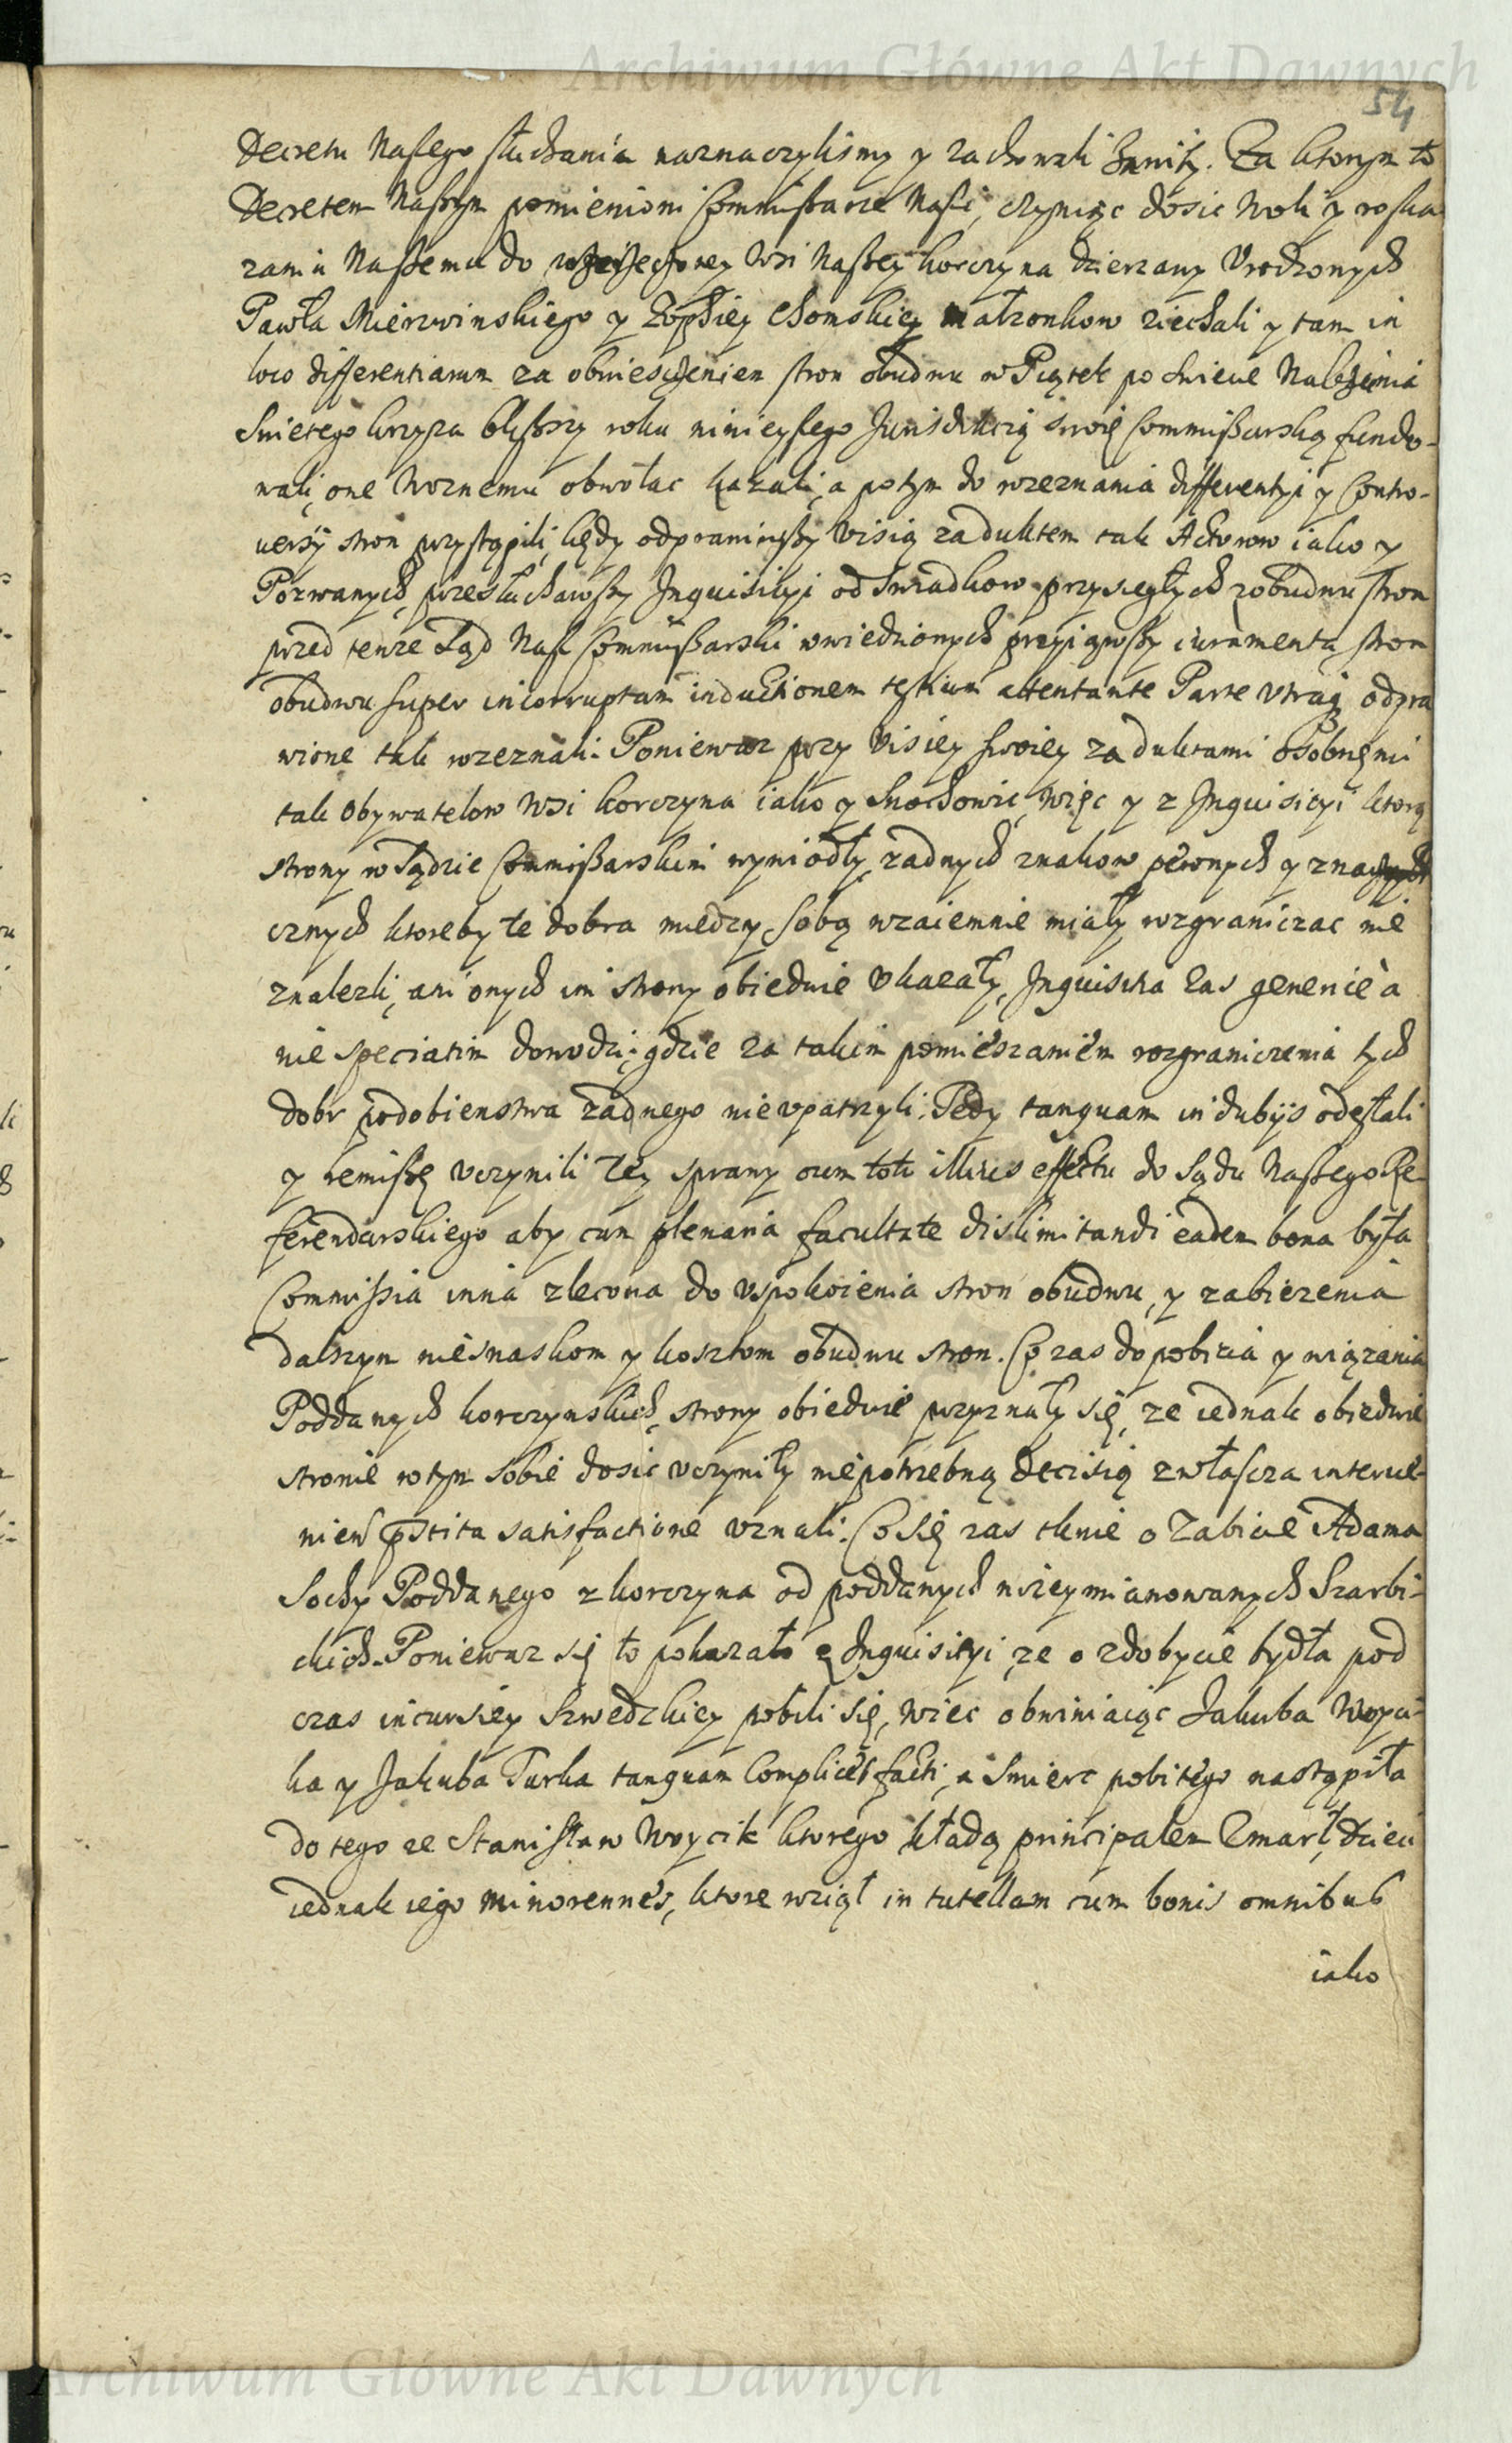 Archiwum Główne Akt Dawnych
54
Decretu Naszego słuchania naznaczylismy y zachowali Za ktorym to
Decretem Naszym pomienioni Commissarze Nasi, czyniąc dosic Woli y roska
zaniu Naszemu do Wsi Naszey korczyna dzierzawy Vrodzonych
Pawła Mierzwinskiego y Zophiey Chomskiey małzonkow ziechali y tam in
loco differentiarum za obwieszczeniem stron obudwu w Piątek po Swiecie Nalezienia
Swietego krzyza blisszy roku ninieyszego Jurisdikcią swoię Commissarską fundo-
wali, one Woznemu obwołac kazali, a potym do rozeznania differentyi y Contro-
uersÿ stron przystąpili, kędy odprawiwszy Visią zaduktem tak Actorow iako y
Pozwanych, przesłuchawszy Inquisityi od Swiadkow przysięgłych z obudwu stron
przed tenze Sąd Nasz Commissarski wwiedzionych przyiąwszy iuramenta stron
obudwu super incorruptam inductionem testium attentante Parte vtraq odpra
wione tak rozeznali. Poniewaz przy Visiey swoiey za duktami osobnemi
tak Obywatelow Wsi korczyna iako y Snochowic, więc y z Inquisityi ktorą
strony w Sądzie Commissarskim wyniodły, zadnych znakow pewnych y zna
cznych ktoreby te dobra miedzy sobą wzaiemnie miały rozgraniczac nie
znalezli, ani onych im strony obiedwie vkazały, Inquisitia zas generice a
nie speciatim dowodzi, gdzie za takim pomieszaniem rozgraniczenia tych
dobr podobienstwa zadnego nie vpatrzyli. Tedy tanquam in dubijs odesłali
y remissę vczynili tey sprawy cum toto illius effectu do Sądu Naszego Re
ferendarskiego aby cum plenaria facultate dislimitandi eadem bona była
Commissia inna zlecona do vspokoienia stron obudwu, y zabiezenia
dalszym niesnaskom y kosztom obudwu stron. Co zas do pobicia y wiązania
Poddanych korczynskich, strony obiedwie przyznały się, ze iednak obiedwie
stronie w tym sobie dosic vczyniły niepotrzebną decisią zwłascza interue-
nien pstita satisfactione vznali. Co się zas tknie o Zabicie Adama
Sochy Poddanego z korczyna od poddanych nizey mianowanych Szarbi-
ckich. Poniewaz się to pokazało z Inquisityi, ze o zdobycie bydła pod
czas incursiey Szwedzkiey pobili się, wiec obwiniaiąc Jakuba
ka y Jakuba Turka tanquam Complices facti, a smierc pobitego nastąpiła
do tego ze Stanisław Woycik ktorego kładą principalem Zmarł, dzieci
iednak iego minorennes, ktore wziął in tutellam cum bonis omnibus
iako
Archiwum Główne Akt Dawnych